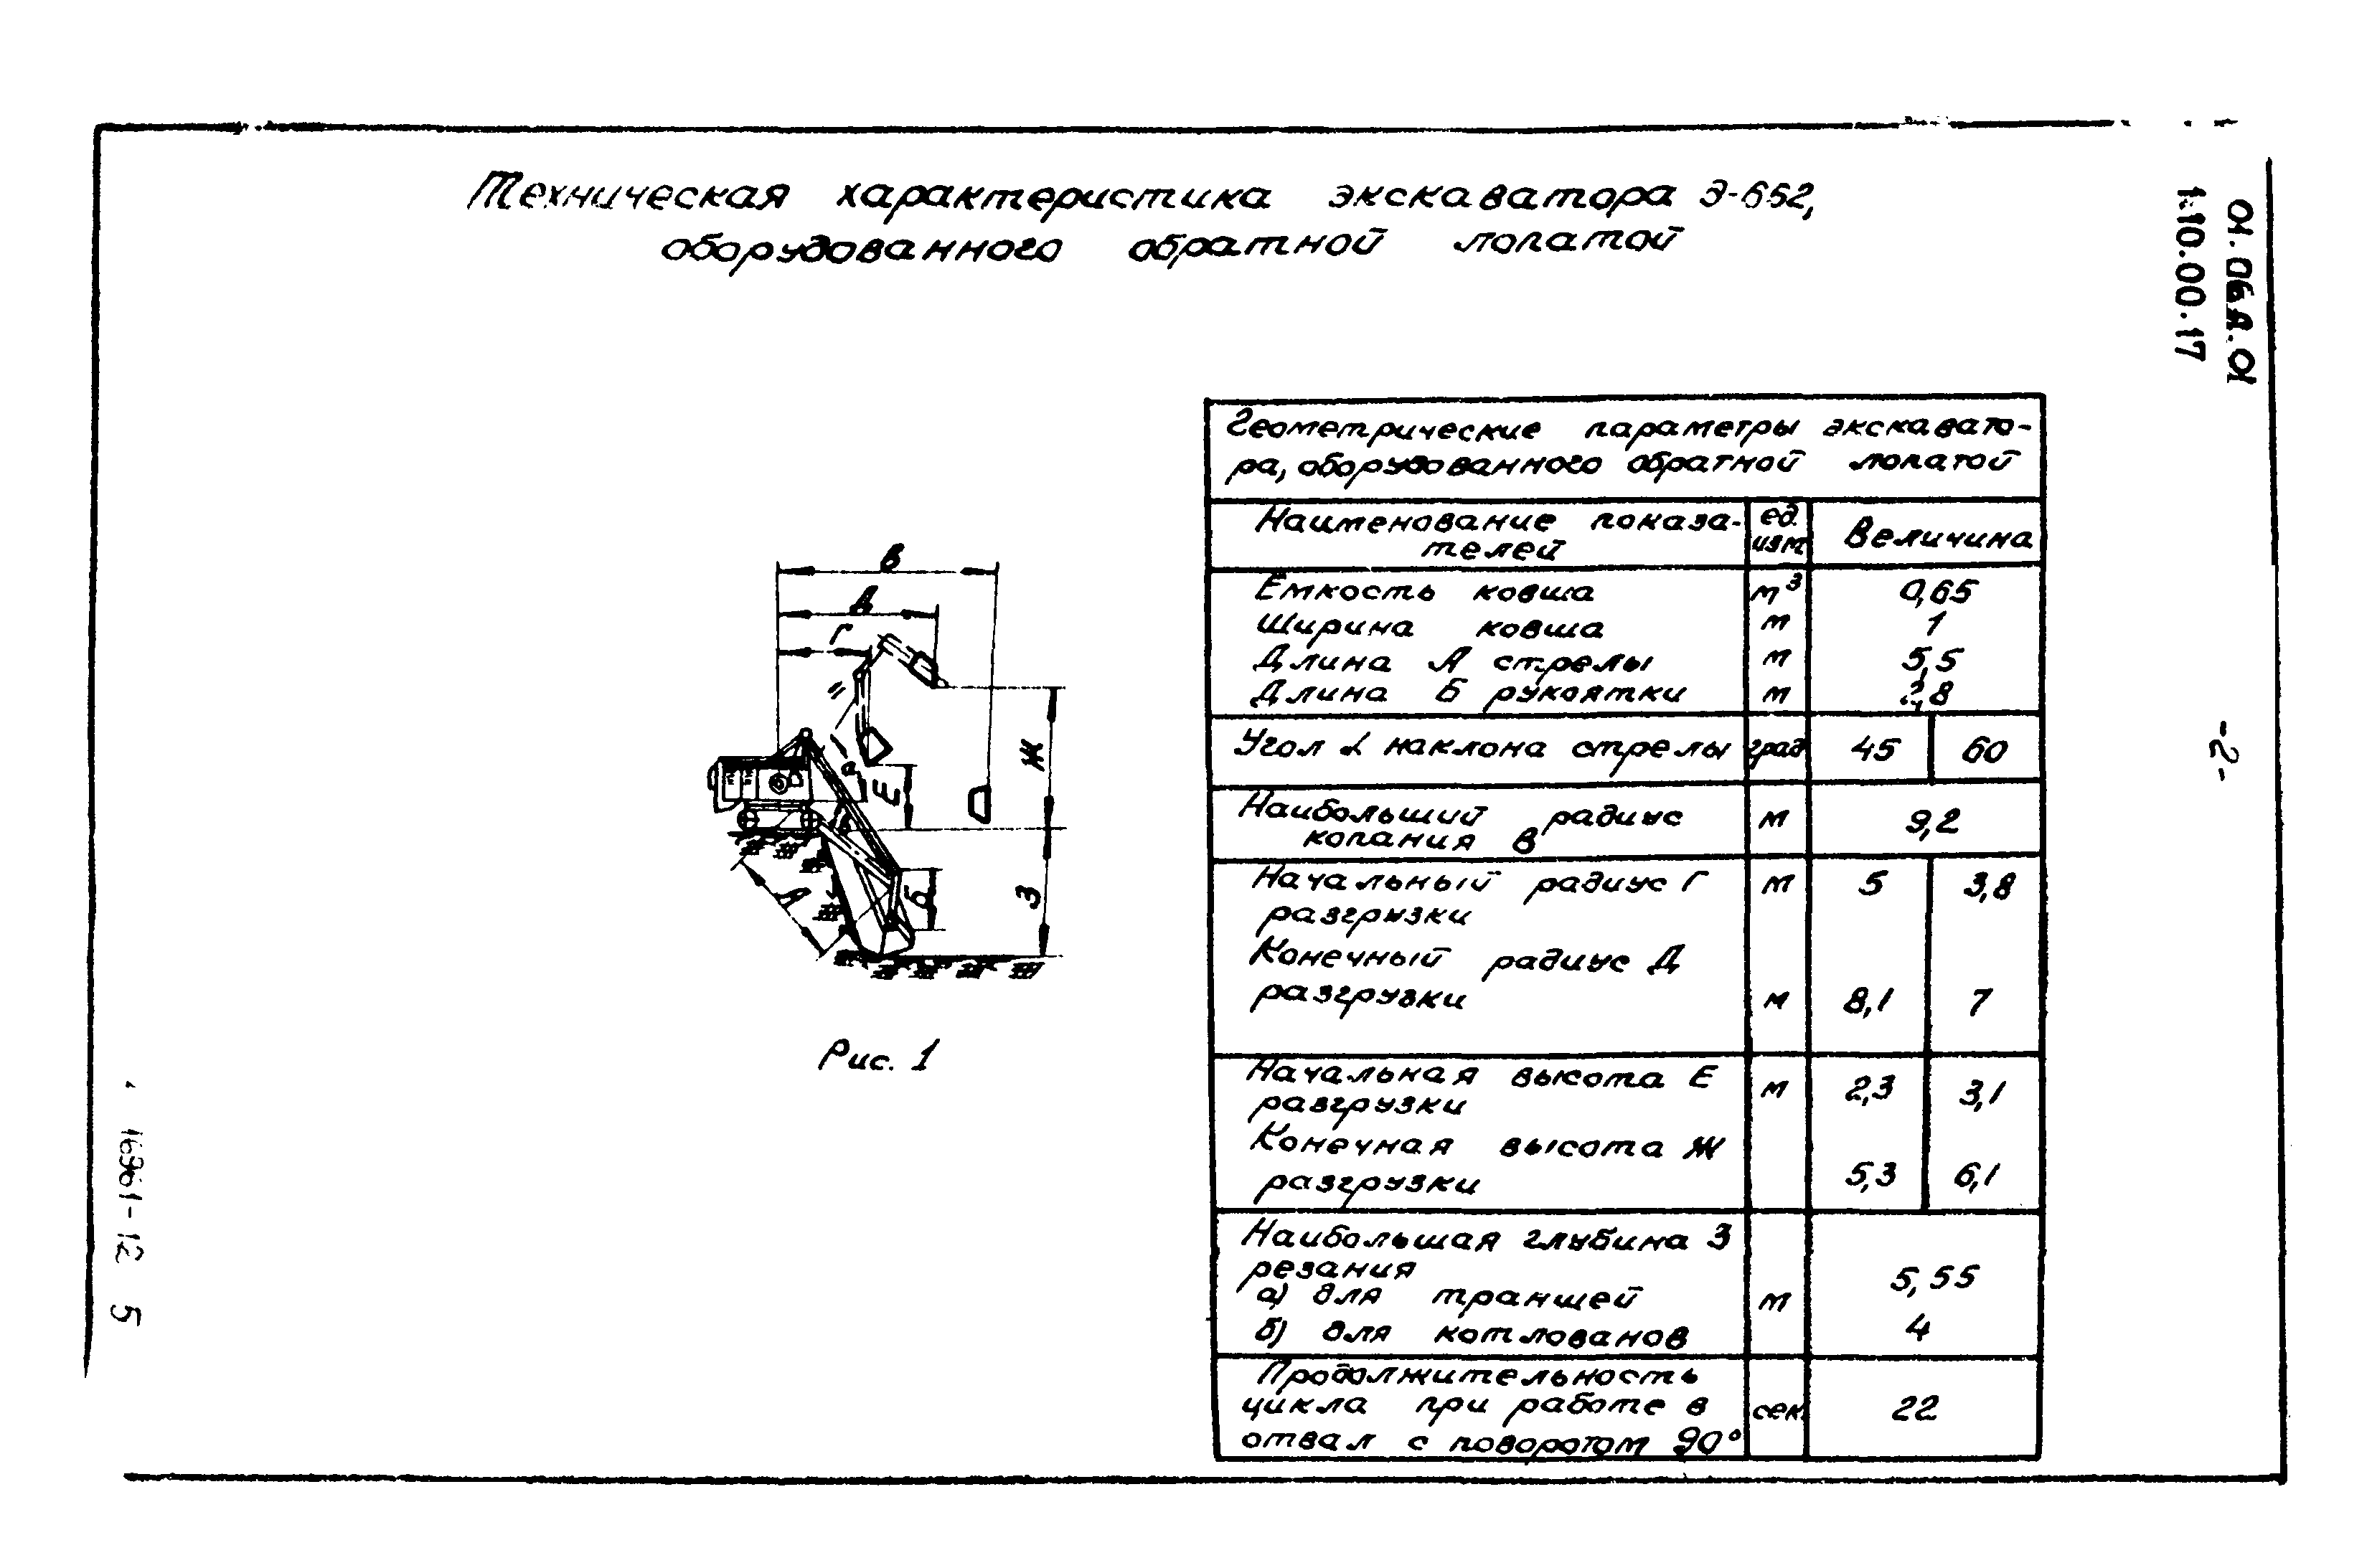 Техническая характеристика экскаватора Э-652,
оборудованного обратной лопатой
01.06А.01
1.10.00.17
-2-
В
Д
Г
Ж
Е
А
Б
З
Рис. 1
Геометрические параметры экскавато-
ра, оборудованного обратной лопатой
Наименование показа- ед. Величина
телей изм
Емкость ковша м³ 0,65
Ширина ковша м 1
Длина А стрелы м 5,5
Длина Б рукоятки м 2,8
Угол α наклона стрелы град 45 60
Наибольший радиус м 9,2
копания В
Начальный радиус Г м 5 3,8
разгрузки
Конечный радиус Д
разгрузки м 8,1 7
Начальная высота Е м 2,3 3,1
разгрузки
Конечная высота Ж
разгрузки 5,3 6,1
Наибольшая глубина З
резания
а) для траншей м 5,55
б) для котлованов 4
Продолжительность
цикла при работе в сек. 22
отвал с поворотом 90°
16961-12 5